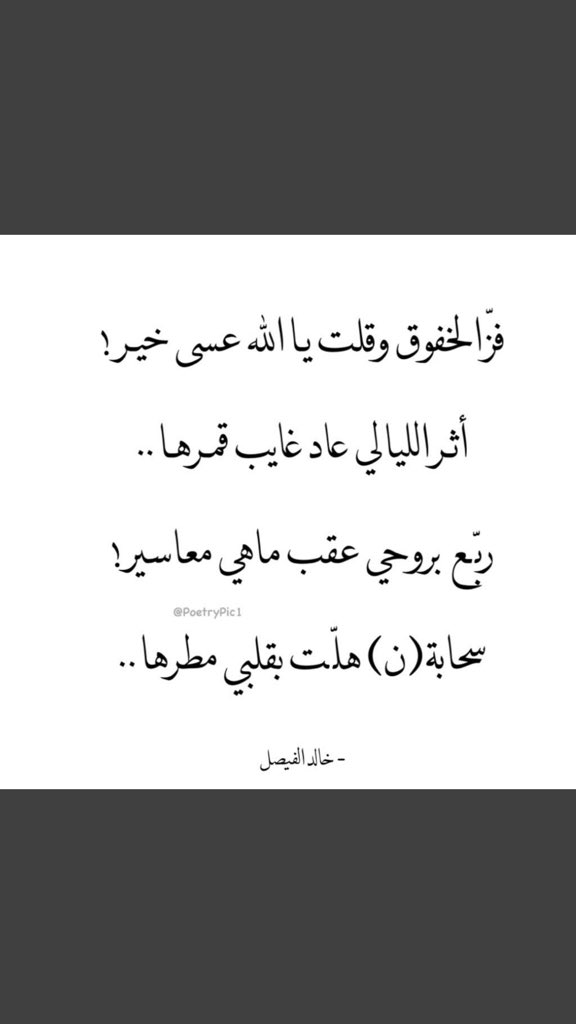 فزّ الخفوق وقلت يا الله عسى خير!
أثر الليالي عاد غايب قمرها ..
ربّع بروحي عقب ماهي معاسير!
@PoetryPic1
سحابة(ن) هلّت بقلبي مطرها ..
- خالد الفيصل